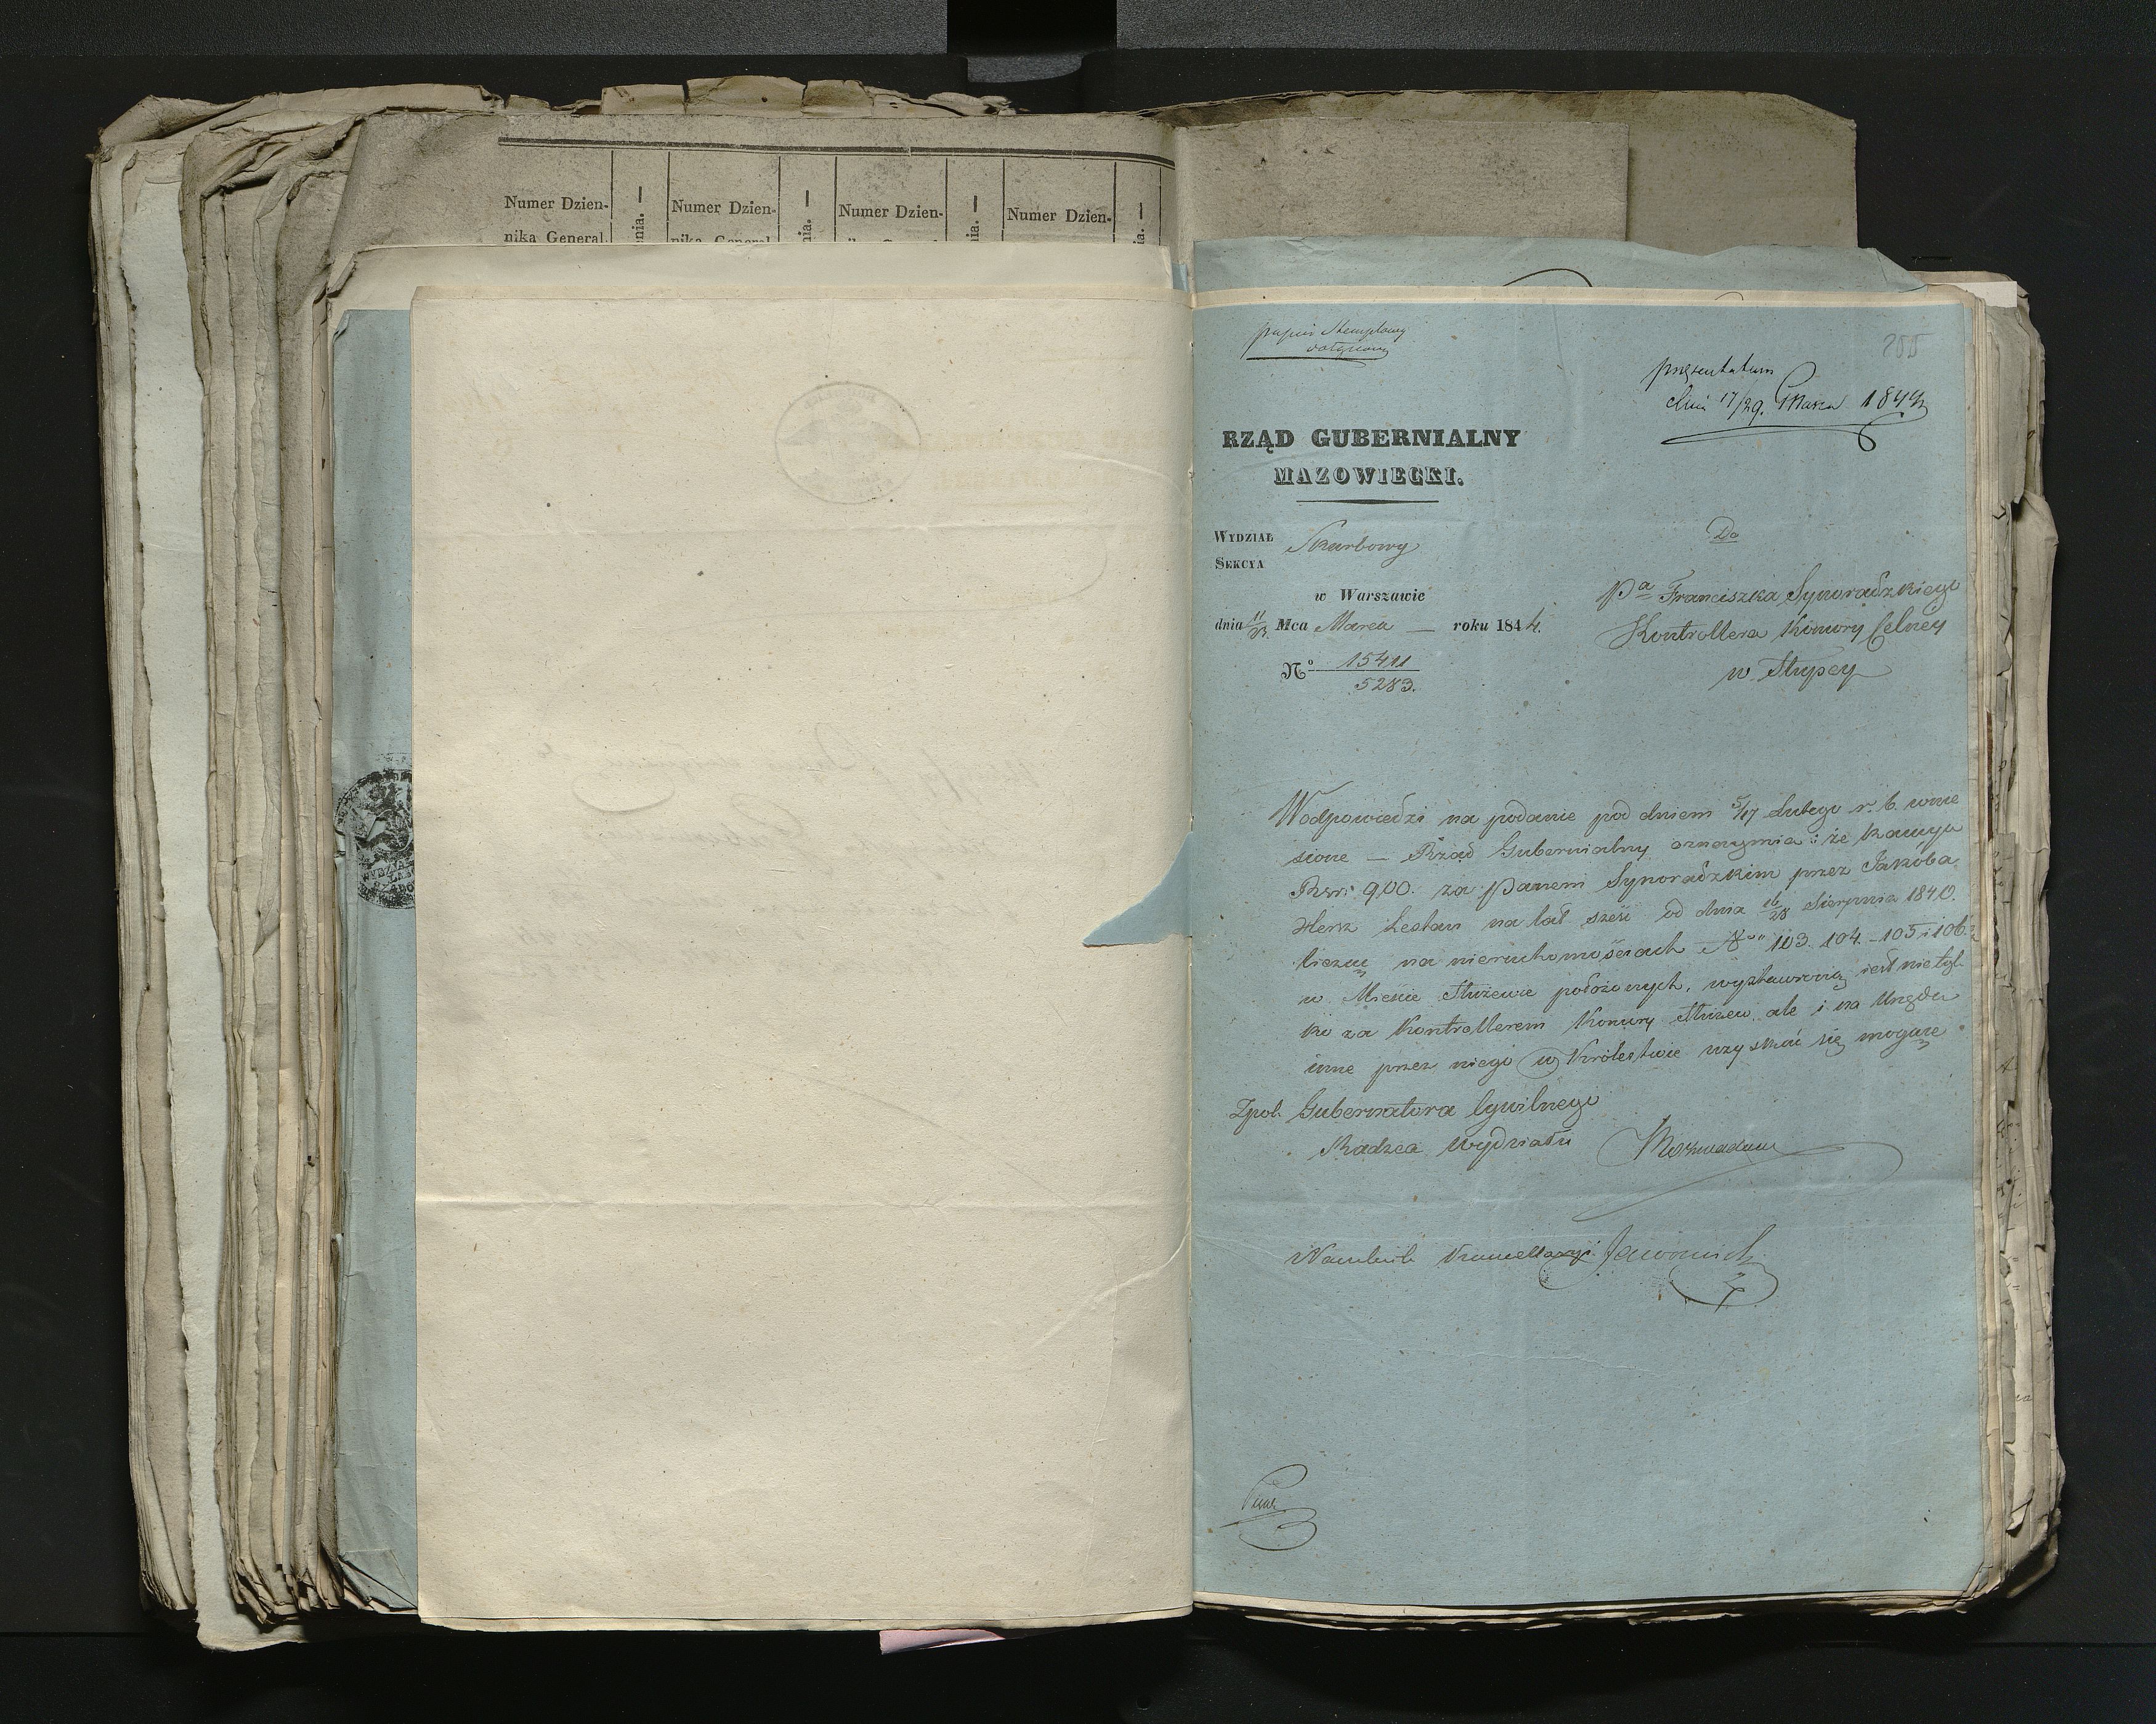 Numer Dzien- Numer Dzien- Numer Dzien- Numer Dzien-
nika General.
papier Stemplowy
dołączony
presentatum
dnia 17/29. Marca 1844
RZĄD GUBERNIALNY
MAZOWIECKI.
WYDZIAŁ Skarbowy
SEKCYA
w Warszawie
dnia 11/23. Mca Marca — roku 1844.
Nº 15411
5283.
Do
Pa Franciszka Synoradzkiego
Kontrollera Komory Celney
w Słupcy
W odpowiedzi na podanie pod dniem 5/17 Lutego r. b. wnie
sione — Rząd Gubernialny oznaymia: że kaucya
Rsr: 900. za Panem Synoradzkim przez Jakóba
Herz Lesław na lat sześć od dnia 16/28 Sierpnia 1840.
licząc na nieruchomościach Nrº 103. 104. - 105 i 106.
w Mieście Służewie położonych, wystawioną jest nietyl
ko za Kontrollerem Komory Służew. ale i na Urzęda
inne przez niego w Królestwie uzyskać się mogące
Zpol. Gubernatora Cywilnego
Radzca Wydziału
Naczelnik Kancellaryi